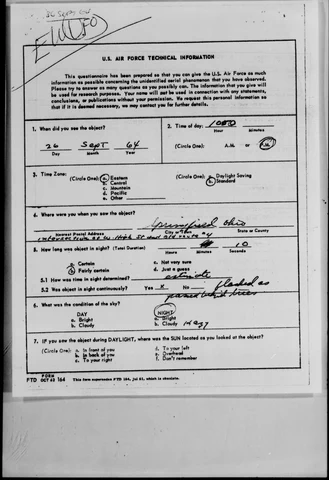 26 Sept 64
U.S. AIR FORCE TECHNICAL INFORMATION
This questionnaire has been prepared so that you can give the U.S. Air Force as much
information as possible concerning the unidentified aerial phenomenon that you have observed.
Please try to answer as many questions as you possibly can. The information that you give will
be used for research purposes. Your name will not be used in connection with any statements,
conclusions, or publications without your permission. We request this personal information so
that if it is deemed necessary, we may contact you for further details.
1. When did you see the object?
26 Sept 64
Day Month Year
2. Time of day:
Hour Minutes
(Circle One): A.M. or P.M.
3. Time Zone:
(Circle One): a. Eastern
b. Central
c. Mountain
d. Pacific
e. Other
(Circle One): a. Daylight Saving
b. Standard
4. Where were you when you saw the object?
Springfield Ohio
Nearest Postal Address City or Town State or County
intersection of W High St and old route 4
5. How long was object in sight? (Total Duration) 10
Hours Minutes Seconds
a. Certain c. Not very sure
b. Fairly certain d. Just a guess
5.1 How was time in sight determined? estimate
5.2 Was object in sight continuously? Yes x No flashed as
passed behind trees
6. What was the condition of the sky?
DAY NIGHT
a. Bright a. Bright
b. Cloudy b. Cloudy Hazy
7. IF you saw the object during DAYLIGHT, where was the SUN located as you looked at the object?
(Circle One): a. In front of you d. To your left
b. In back of you e. Overhead
c. To your right f. Don't remember
FORM
FTD OCT 62 164 This form supersedes FTD 164, Jul 61, which is obsolete.